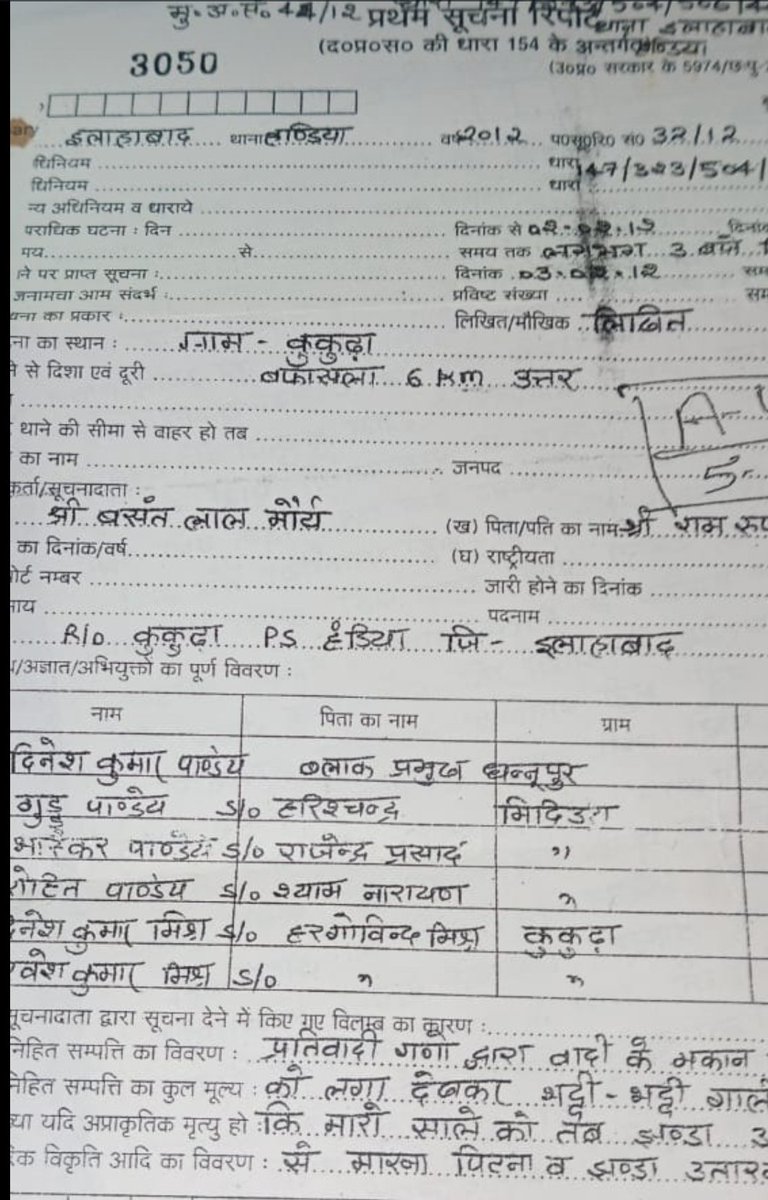 मु.अ.सं. 44/12 प्रथम सूचना रिपोर्ट थाना
(द०प्र०स० की धारा 154 के अन्तर्गत)
3050
(उ०प्र० सरकार के 5974/छ-पु-
इलाहाबाद थाना हण्डिया वर्ष 2012 प०सू०रि० सं० 32/12
धिनियम धारा 147/323/504/
धिनियम धारा
न्य अधिनियम व धाराये
पराधिक घटना : दिन दिनांक से 02.02.12 दिनांक
मय से समय तक लगभग 3 बजे
ने पर प्राप्त सूचना : दिनांक 03.02.12 सम
जनामचा आम संदर्भ : प्रविष्ट संख्या सम
चना का प्रकार : लिखित/मौखिक लिखित
ना का स्थान : ग्राम - कुकुढ़ा
ने से दिशा एवं दूरी बफासला 6 Km उत्तर
थाने की सीमा से वाहर हो तब
का नाम जनपद
कर्ता/सूचनादाता :
श्री बसंत लाल मौर्य (ख) पिता/पति का नाम श्री राम
का दिनांक/वर्ष (घ) राष्ट्रीयता
पोर्ट नम्बर जारी होने का दिनांक
साय पदनाम
R/o कुकुढ़ा P.S हंडिया जि- इलाहाबाद
/अज्ञात/अभियुक्तों का पूर्ण विवरण :
नाम पिता का नाम ग्राम
दिनेश कुमार पाण्डेय ब्लाक प्रमुख धन्नूपुर
गुड्डू पाण्डेय S/o हरिश्चन्द्र
भास्कर पाण्डेय S/o राजेन्द्र प्रसाद "
रोहित पाण्डेय S/o श्याम नारायण "
दिनेश कुमार मिश्र S/o हरगोविन्द मिश्र कुकुढ़ा
कुमार मिश्र S/o " "
सूचनादाता द्वारा सूचना देने में किए गए विलम्ब का कारण :
निहित सम्पत्ति का विवरण : प्रतिवादी गणों द्वारा वादी के मकान
निहित सम्पत्ति का कुल मूल्य : को लगा देखकर भद्दी-भद्दी
या यदि अप्राकृतिक मृत्यु हो : कि मारो साले को तब झण्डा
िक विकृति आदि का विवरण : से मारना पिटना व झण्डा